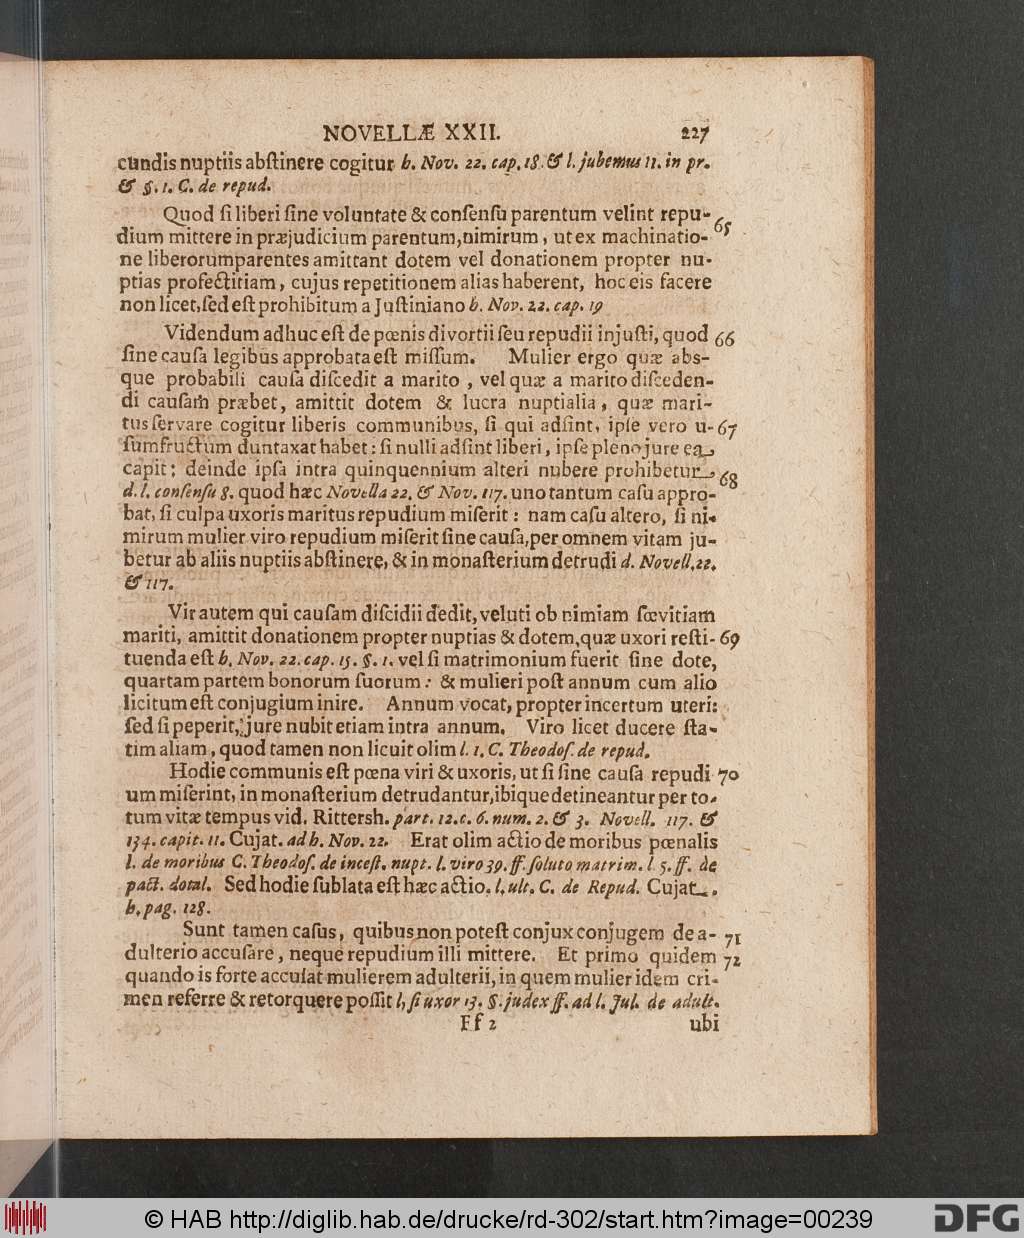 NOVELLÆ XXII. 227
cundis nuptiis abſtinere cogitur h. Nov. 22. cap. 18. & l. jubemus 11. in pr.
& §. 1. C. de repud.
Quod ſi liberi ſine voluntate & conſenſu parentum velint repu- 65
dium mittere in præjudicium parentum, nimirum, ut ex machinatio-
ne liberorum parentes amittant dotem vel donationem propter nu-
ptias profectitiam, cujus repetitionem alias haberent, hoc eis facere
non licet, ſed eſt prohibitum a Juſtiniano h. Nov. 22. cap. 19
Videndum adhuc eſt de pœnis divortii ſeu repudii injuſti, quod 66
ſine cauſa legibus approbata eſt miſſum. Mulier ergo quæ abs-
que probabili cauſa diſcedit a marito, vel quæ a marito diſceden-
di cauſam præbet, amittit dotem & lucra nuptialia, quæ mari-
tus ſervare cogitur liberis communibus, ſi qui adſint, ipſe vero u- 67
ſumfructum duntaxat habet: ſi nulli adſint liberi, ipſe pleno jure ea
capit; deinde ipſa intra quinquennium alteri nubere prohibetur 68
d. l. conſenſu 8. quod hæc Novella 22. & Nov. 117. uno tantum caſu appro-
bat, ſi culpa uxoris maritus repudium miſerit: nam caſu altero, ſi ni-
mirum mulier viro repudium miſerit ſine cauſa, per omnem vitam ju-
betur ab aliis nuptiis abſtinere, & in monaſterium detrudi d. Novell. 22.
& 117.
Vir autem qui cauſam diſcidii dedit, veluti ob nimiam ſœvitiam
mariti, amittit donationem propter nuptias & dotem, quæ uxori reſti- 69
tuenda eſt h. Nov. 22. cap. 15. §. 1. vel ſi matrimonium fuerit ſine dote,
quartam partem bonorum ſuorum: & mulieri poſt annum cum alio
licitum eſt conjugium inire. Annum vocat, propter incertum uteri:
ſed ſi peperit, jure nubit etiam intra annum. Viro licet ducere ſta-
tim aliam, quod tamen non licuit olim l. 1. C. Theodoſ. de repud.
Hodie communis eſt pœna viri & uxoris, ut ſi ſine cauſa repudi 70
um miſerint, in monaſterium detrudantur, ibique detineantur per to-
tum vitæ tempus vid. Rittersh. part. 12. c. 6. num. 2. & 3. Novell. 117. &
134. capit. 11. Cujat. ad h. Nov. 22. Erat olim actio de moribus pœnalis
l. de moribus C. Theodoſ. de inceſt. nupt. l. viro 39. ff. ſoluto matrim. l 5. ff. de
pact. dotal. Sed hodie ſublata eſt hæc actio. l. ult. C. de Repud. Cujat.
h. pag. 128.
Sunt tamen caſus, quibus non poteſt conjux conjugem de a- 71
dulterio accuſare, neque repudium illi mittere. Et primo quidem 72
quando is forte accuſat mulierem adulterii, in quem mulier idem cri-
men referre & retorquere poſſit l, ſi uxor 13. §. judex ff. ad l. Jul. de adult.
Ff 2 ubi
© HAB http://diglib.hab.de/drucke/rd-302/start.htm?image=00239 DFG